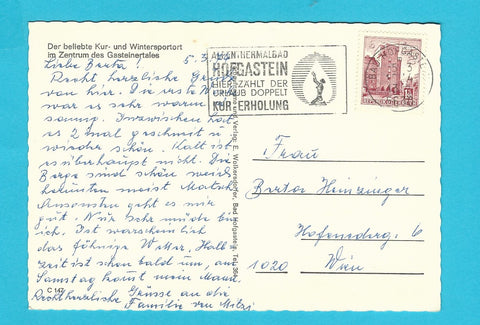 Der beliebte Kur- und Wintersportort
im Zentrum des Gasteinertales
Liebe Berta! 5.3.
Recht herzliche Grüße
von hier. Die erste Woche
war es sehr warm u.
sonnig. Inzwischen hat
es 2 mal geschneit u.
wieder schön. Kalt ist
es überhaupt nicht. Die
Berge sind schön weiß
herunten meist Matsch.
Ansonsten geht es mir
gut. Nur sehr müde bin
ich. Ist warscheinlich
das föhnige Wetter. Halb-
zeit ist schon bald um, am
Samstag kommt mein Mann.
Recht herzliche Grüsse an die
Familie von Mitzi
ALPENTHERMALBAD
HOFGASTEIN
HIER ZÄHLT DER
URLAUB DOPPELT
KUR-ERHOLUNG
BAD HOFGASTEIN
REPUBLIK ÖSTERREICH
Verlag E. Wolkersdorfer, Bad Hofgastein, Tel.
Frau
Berta Heinzinger
Hofenederg. 6
1020 Wien